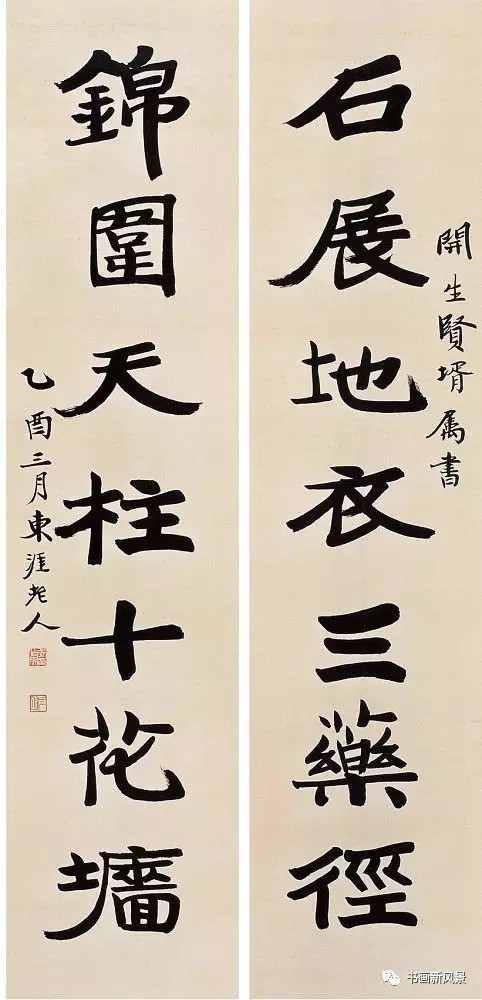 開生賢壻属書
石展地衣三藥徑
錦圍天柱十花墻
乙酉三月東涯老人
书画新风景